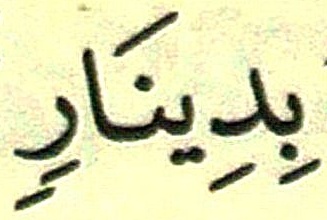 بِدِينَارٍ